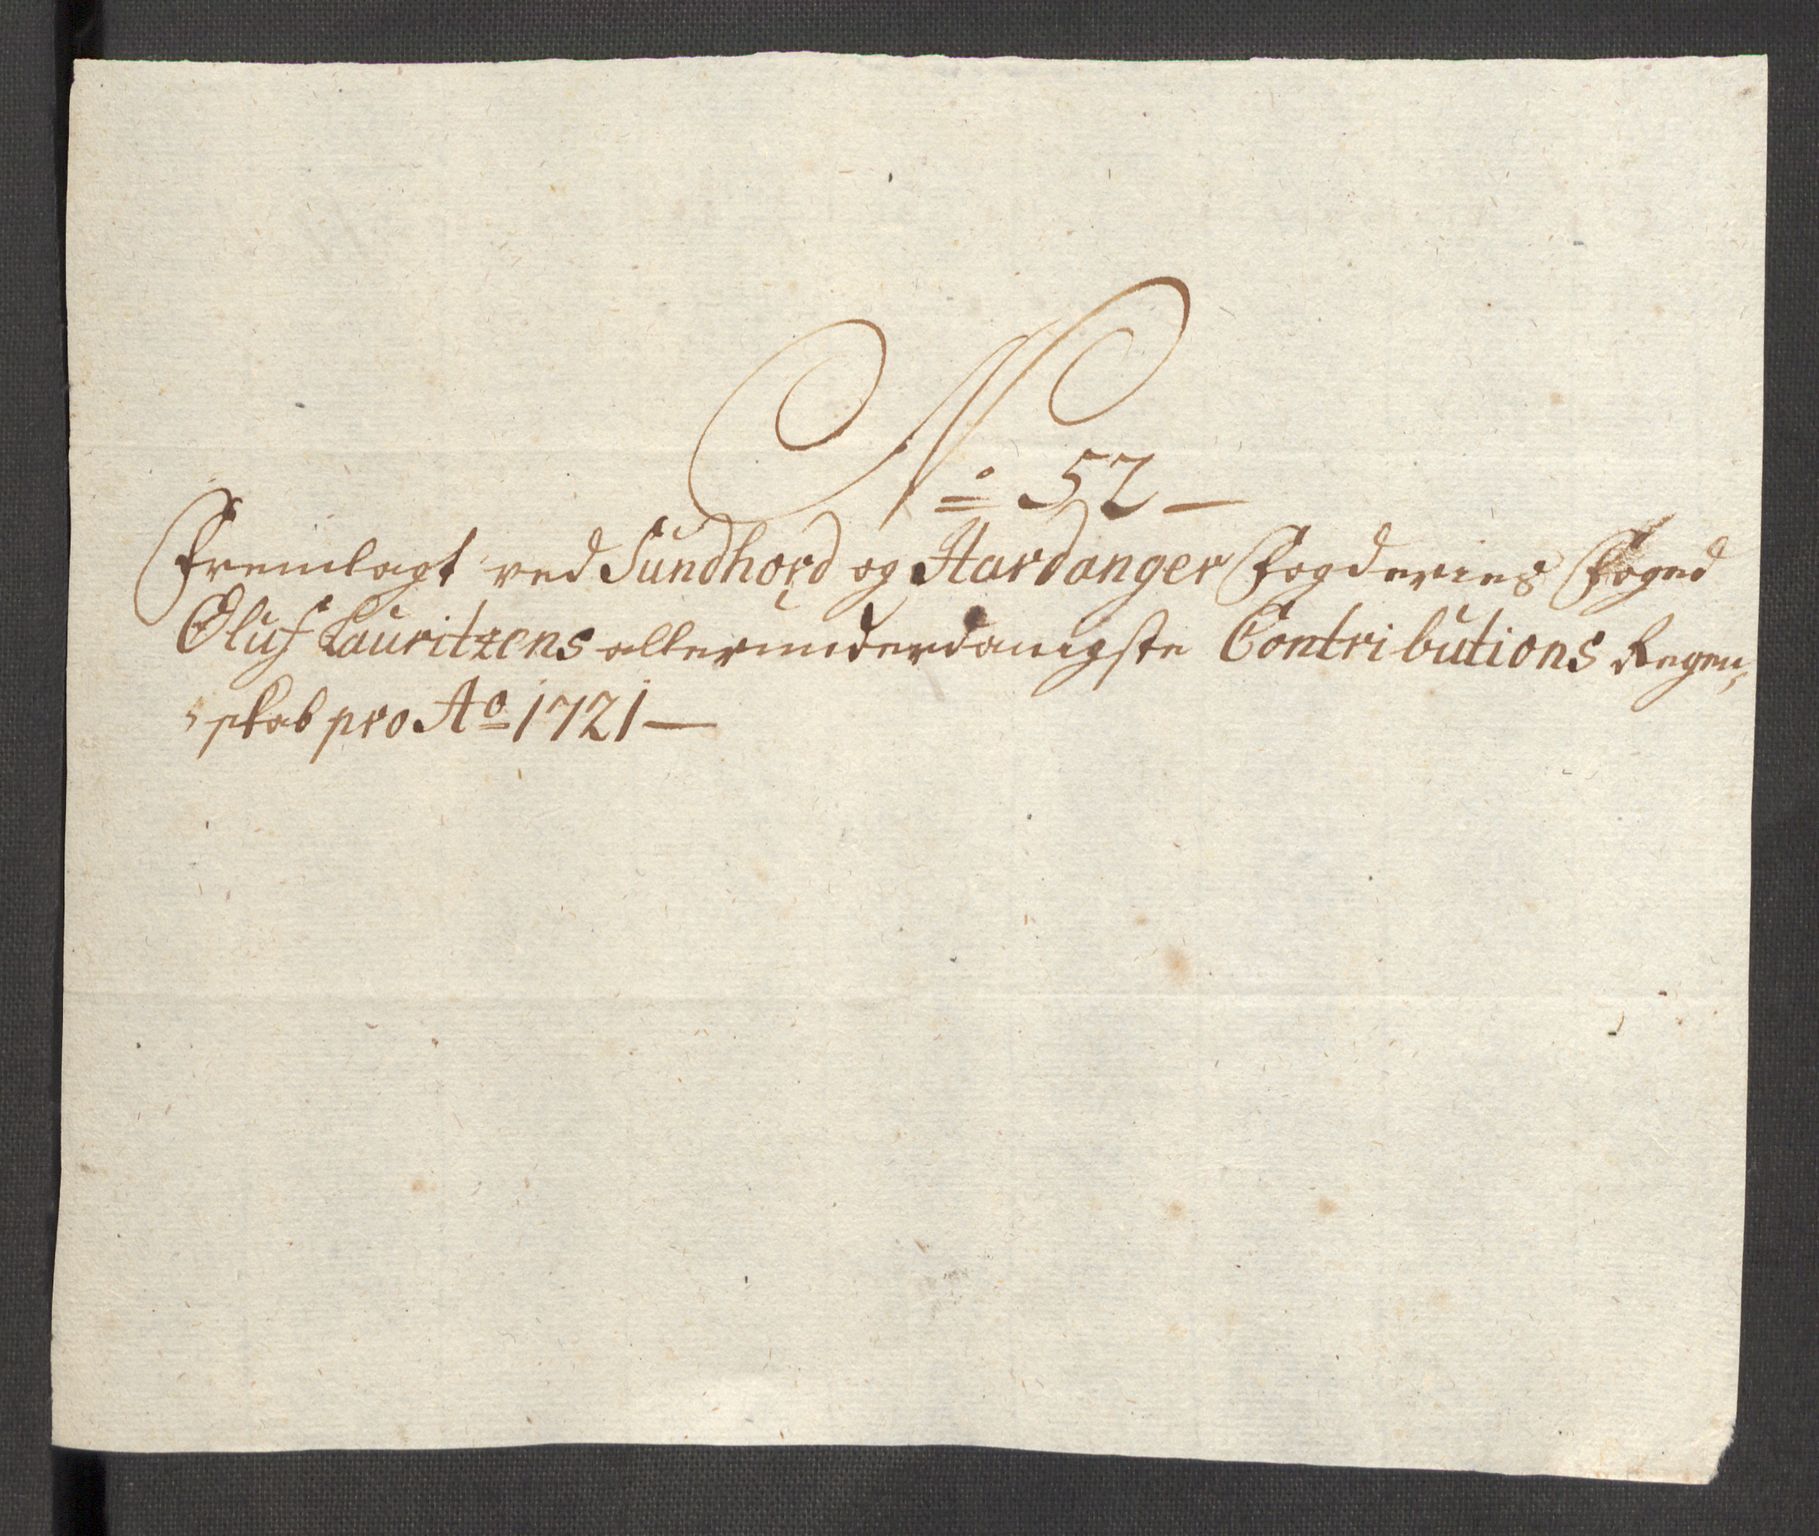 No 52 —
Fremlagt ved Sundhord og Hardanger Fogderies Foged
Oluf Lauritzens allerunderdanigste Contributions Regen„
„skab pro Ao 1721 —